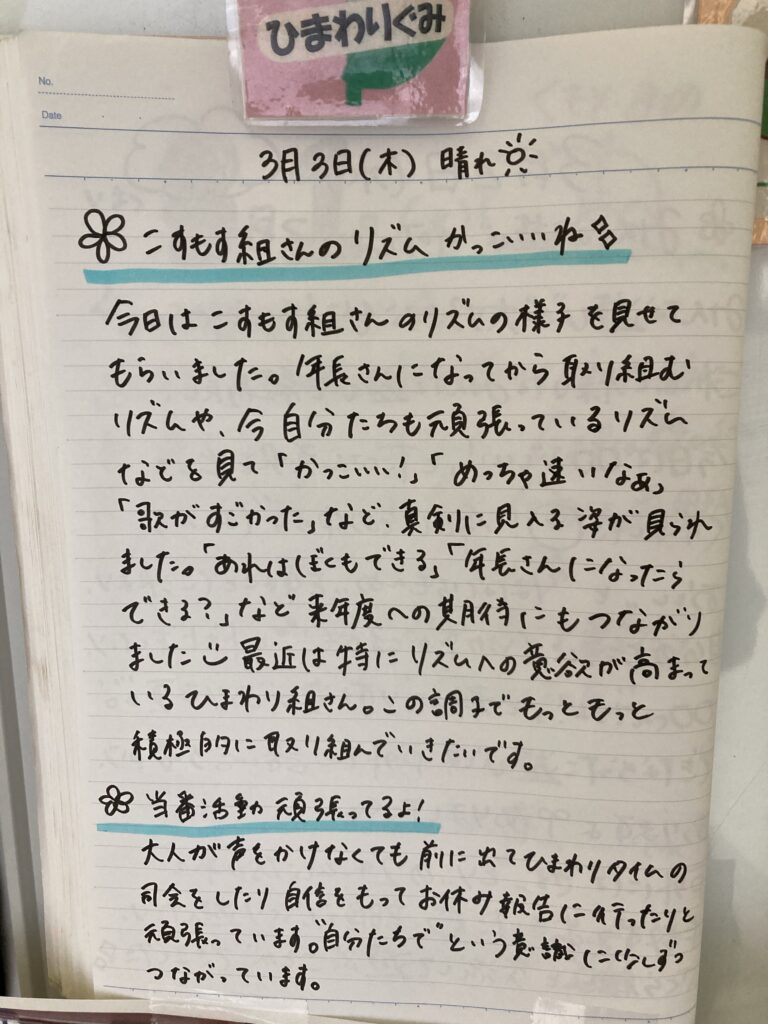 ひまわりぐみ
No.
Date
3月3日(木) 晴れ
こすもす組さんのリズム かっこいいね
今日はこすもす組さんのリズムの様子を見せて
もらいました。年長さんになってから取り組む
リズムや、今自分たちも頑張っているリズム
などを見て「かっこいい!」「めっちゃ速いなぁ」
「歌がすごかった」など、真剣に見入る姿が見られ
ました。「あれはぼくもできる」「年長さんになったら
できる?」など来年度への期待にもつながり
ました 最近は特にリズムへの意欲が高まって
いるひまわり組さん。この調子でもっともっと
積極的に取り組んでいきたいです。
当番活動 頑張ってるよ!
大人が声をかけなくても前に出てひまわりタイムの
司会をしたり自信をもってお休み報告に行ったりと
頑張っています。"自分たちで"という意識に少しずつ
つながっています。